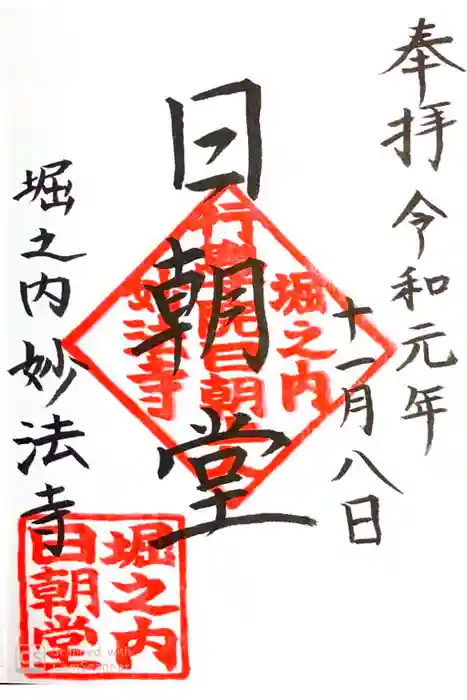 奉拝 令和元年
十一月八日
日朝堂
堀之内妙法寺
堀之内
日朝堂
妙法寺
堀之内
日朝堂
Scanned with
CamScanner